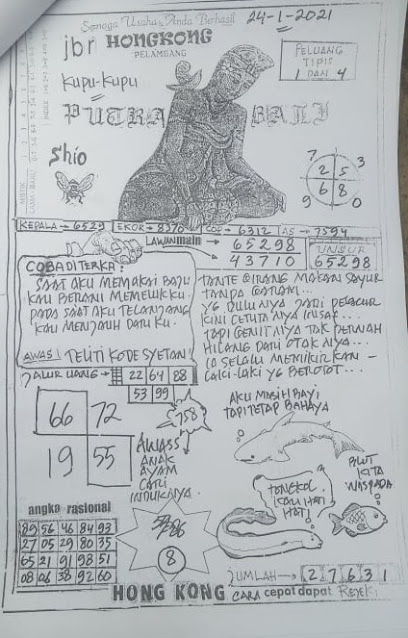 Semoga Usaha Anda Berhasil
24-1-2021
jbr HONGKONG
PELAMBANG
PELUANG
TIPIS
1 DAN 4
KUPU-KUPU
PUTRA BALI
Shio
7 3
2 5
6 8
9 0
KEPALA → 6529 EKOR → 8370 COP → 6312 AS → 7594
LAWAN main → 65298
43710
UNSUR
65298
COBA DI TERKA:
SAAT AKU MEMAKAI BAJU
KAU BERANI MEMELUKKU
PADA SAAT AKU TELANJANG
KAU MENJAUH DARI KU.
AWAS! TELITI KODE SYETAN
TANTE GIRANG MAKAN SAYUR
TANPA GARAM...
YG DULUNYA JADI PELACUR
KINI CERITANYA INSAF...
TAPI GENITNYA TAK PERNAH
HILANG DARI OTAKNYA...
IA SELALU MEMIKIRKAN
LAKI-LAKI YG BEROTOT...
JALUR UANG → 22 64 88
53 99
66 72
19 55
758
AWASS
ANAK
AYAM
CARI
INDUKNYA.
AKU MASIH BAYI
TAPI TETAP BAHAYA
TONGKOL
ICAN HATI
HATI
KITA
WASPADA
angka rasional
89 56 46 84 93
27 05 29 80 35
65 21 91 98 51
08 06 38 92 60
8
JUMLAH → 2 7 6 3 1
HONG KONG CARA cepat dapat REYEK.